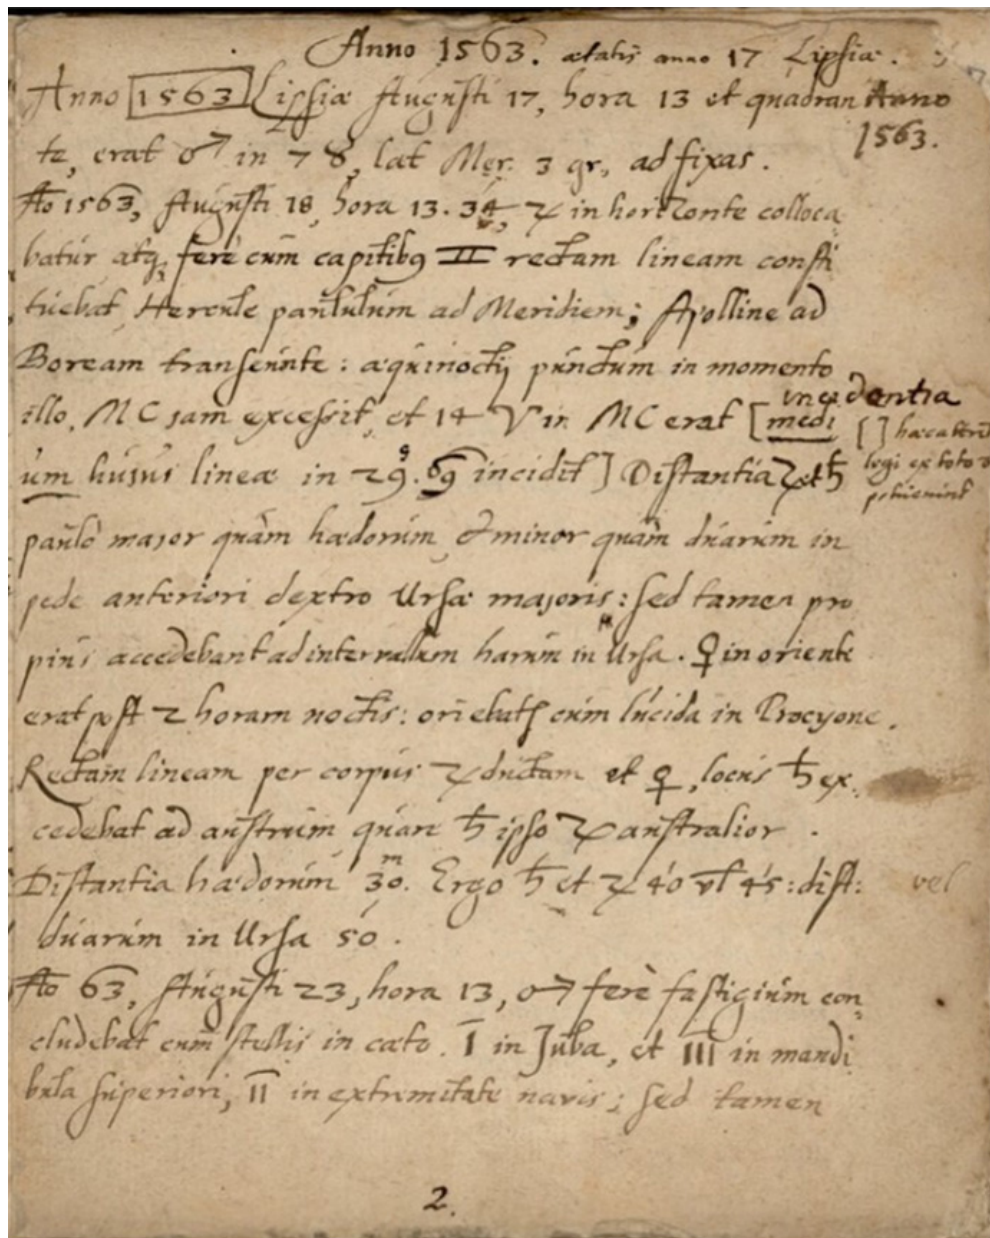 Anno 1563. ætatis anno 17 Lipsiæ.
Anno 1563 Lipsiæ Augusti 17, hora 13 et quadran Anno
1563.
te, erat ♂ in 7 ♉, lat Mer. 3 gr, ad fixas.
Ao 1563, Augusti 18, hora 13. 34, ♃ in horizonte colloca
batur atq fere cum capitibq ♊ rectam lineam consti
tuebat Hercule paululum ad Meridiem; Apolline ad
Boream transeunte: æquinoctij punctum in momento
incidentia
illo, MC jam excessit, et 14 ♈ in MC erat [medi
[ ] hæc
um hujus lineæ in 29. ♋ incidit] Distantia ♃ et ♄
legi ex toto
paulo major quàm hædorum, & minor quàm duarum in
pede anteriori dextro Ursæ majoris: sed tamen pro
pius accedebant ad intervallum harum in Ursa. ♀ in oriente
erat post 2 horam noctis: oriebatr cum lucida in Procyone.
Rectam lineam per corpus ♃ ductam et ♀, locus ♄ ex
cedebat ad austrum quare ♄ ipso ♃ australior.
Distantia hædorum 30 m. Ergo ♄ et ♃ 40 vl 45: dist: vel
duarum in Ursa 50.
Ao 63, Augusti 23, hora 13, ♂ ferè fastigium con
cludebat cum stellis in cæto. I in Juba, et III in mandi
bula superiori, II in extremitate navis; sed tamen
2.